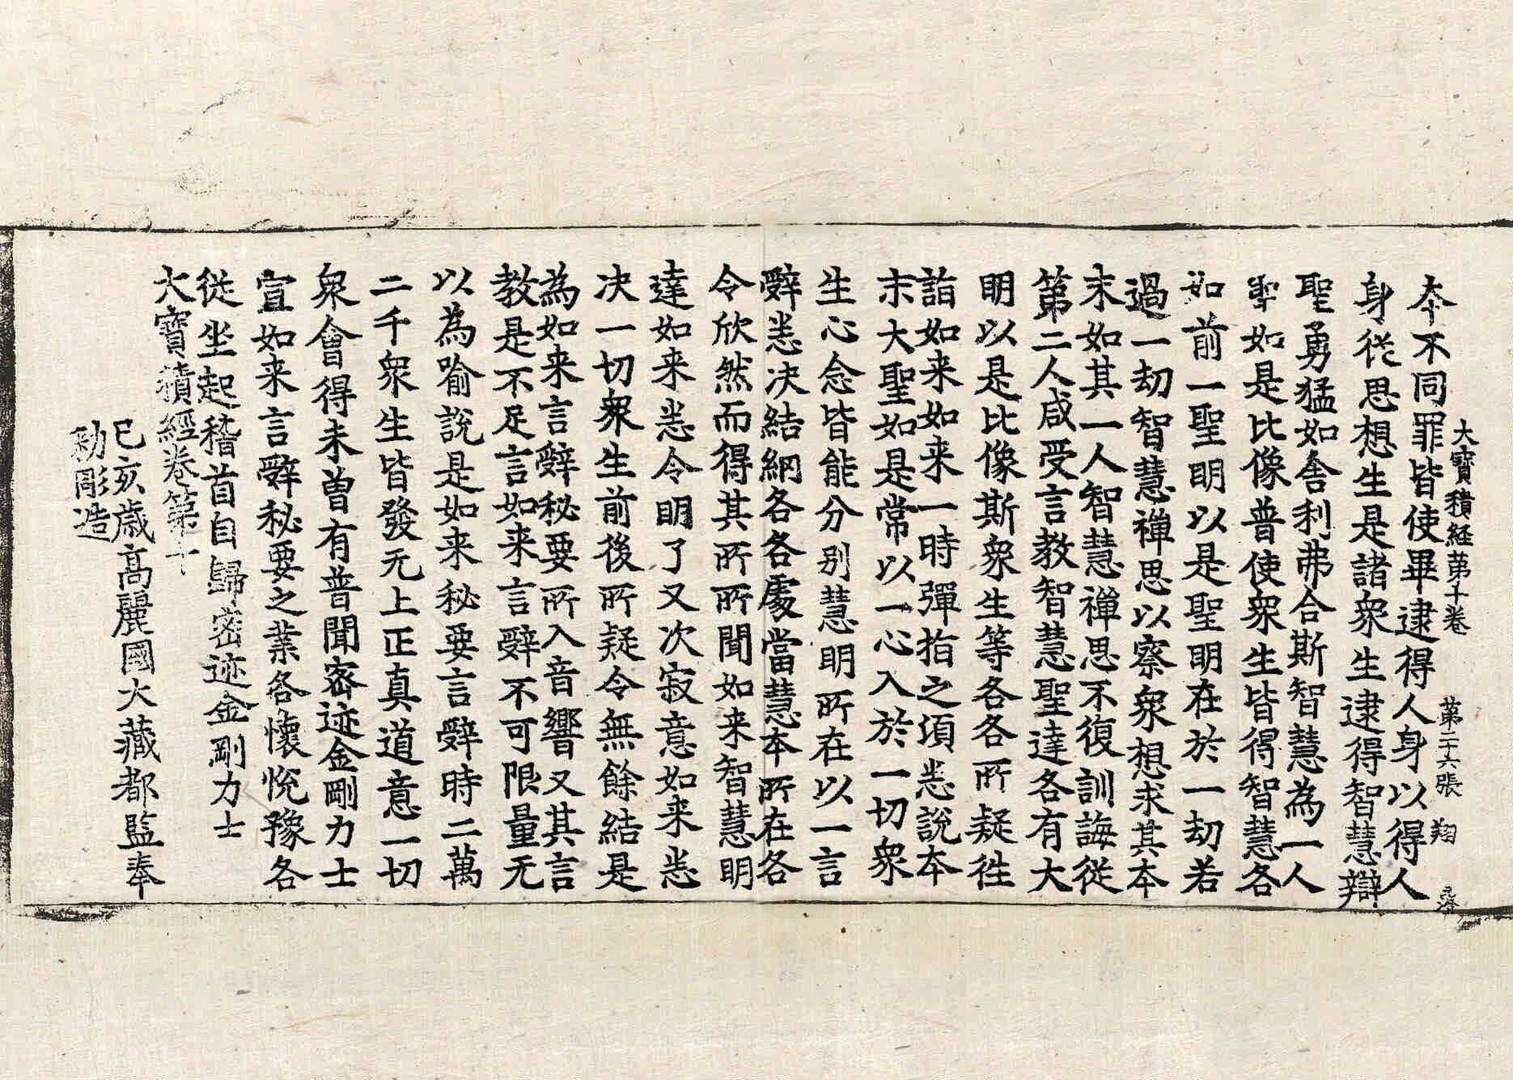 大寶積経苐十卷 第二十六張 翔
夲不同罪皆使畢逮得人身以得人
身從思想生是諸衆生逮得智慧辯
聖勇猛如舎利弗合斯智慧為一人
聖如是比像普使衆生皆得智慧各
如前一聖明以是聖明在於一劫若
過一劫智慧禪思以察衆想求其夲
末如其一人智慧禪思不復訓誨從
第二人咸受言教智慧聖達各有大
明以是比像斯衆生等各各所疑徃
詣如来如来一時彈指之頃悉說夲
末大聖如是常以一心入於一切衆
生心念皆能分别慧明所在以一言
辤悉决結網各各處當慧夲所在各
令欣然而得其所所聞如来智慧明
達如来悉令明了又次寂意如来悉
决一切衆生前後所疑令無餘結是
為如来言辤秘要所入音響又其言
教是不足言如来言辤不可限量无
以為喻說是如来秘要言辤時二萬
二千衆生皆發无上正真道意一切
衆會得未曽有普聞宻迹金剛力士
宣如来言辤秘要之業各懷悅豫各
從坐起稽首自歸宻迹金剛力士
大寶積經卷第十
己亥歳髙麗國大藏都監奉
勅彫造